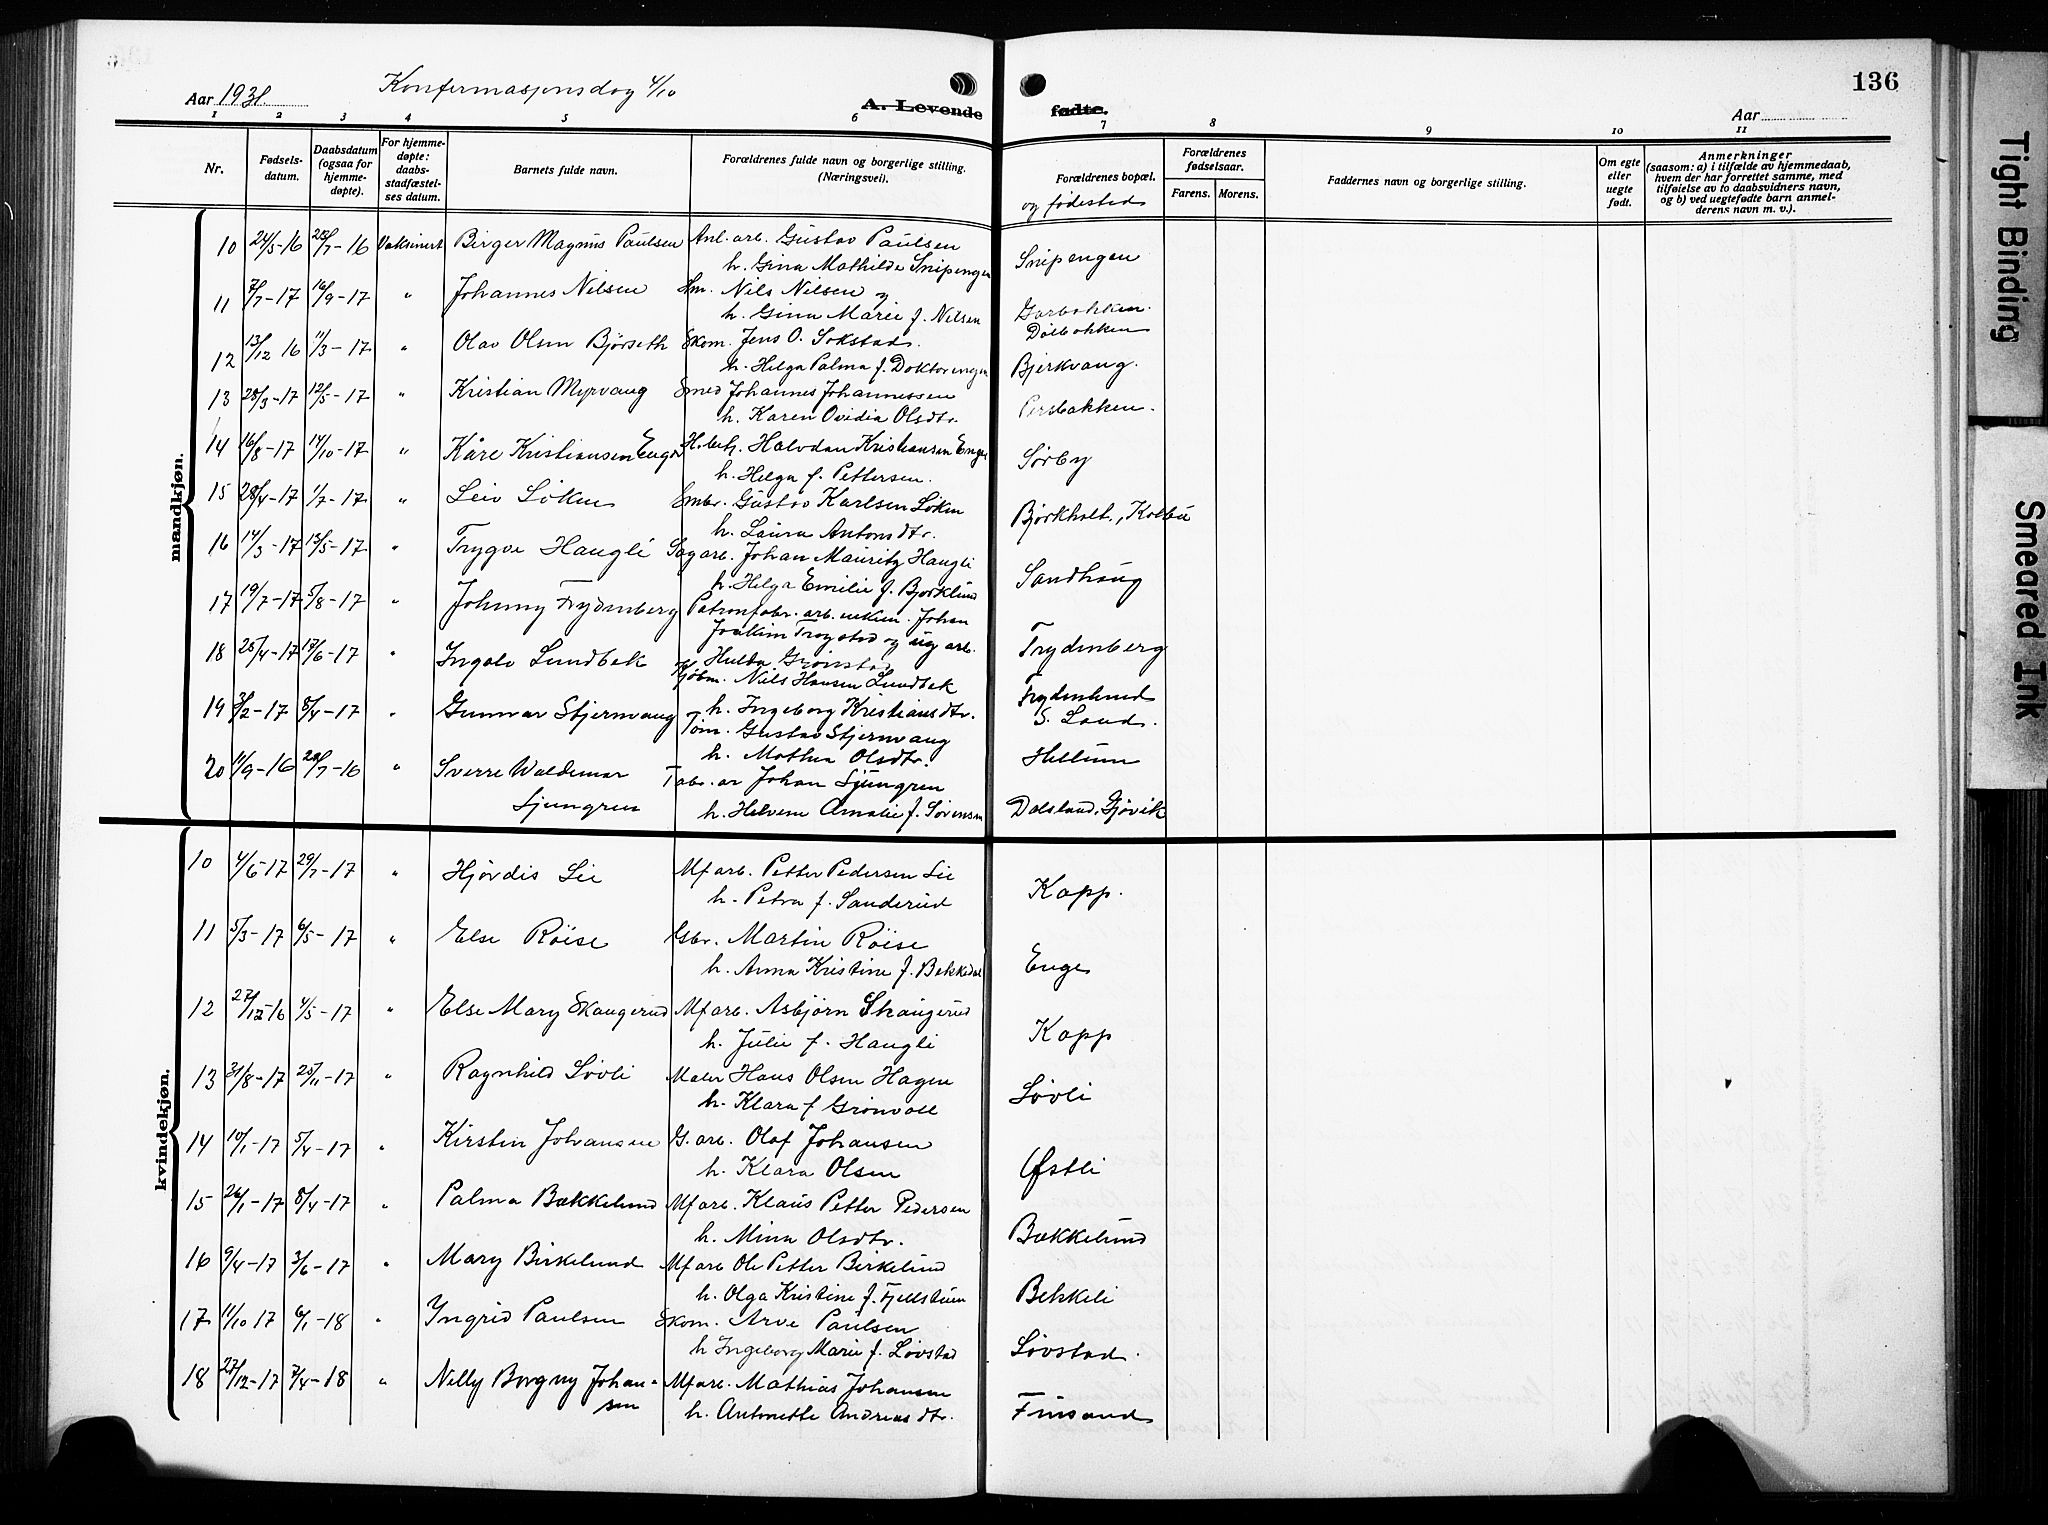 136
Aar 1931. Konfermasjonsdag 4/10 A. Levende fødte. Aar
1 2 3 4 5 6 7 8 9 10 11
Nr. Fødsels-datum. Daabsdatum (ogsaa for hjemme-døpte). For hjemme-døpte: daabs-stadfæstel-ses datum. Barnets fulde navn. Forældrenes fulde navn og borgerlige stilling. (Næringsvei). Forældrenes bopæl. og fødested Forældrenes fødselsaar. Farens. Morens. Faddernes navn og borgerlige stilling. Om egte eller uegte født. Anmerkninger (saasom: a) i tilfælde av hjemmedaab, hvem der har forrettet samme, med tilføielse av to daabsvidners navn, og b) ved uegtefødte barn anmel-derens navn m. v.).
mandkjøn.
10 24/5-16 23/7-16 Vaksinert Birger Magnus Paulsen Anl. arb. Gustav Paulsen
h. Gina Mathilde Snipengen Snipengen
11 7/7-17 16/9-17 " Johannes Nilsen Hm. Nils Nilsen og
h. Gina Marie f. Nilsen Garbakken. Dølbakken
12 13/12 16 11/3-17 " Olav Olsen Bjørseth Skom. Jens O. Sokstad.
h. Helga Palma f. Doktorengen Bjerkvang.
13 28/3-17 12/5-17 " Kristian Myrvang Smed Johannes Johannessen
h. Karen Ovidia Olsdtr. Persbakken.
14 16/8-17 14/10-17 " Kåre Kristiansen Enger H. Halvdan Kristiansen Enger
h. Helga f. Pettersen. Sørby
15 28/4-17 1/7-17 " Leiv Løken Smbr. Gustav Karlsen Løken
h. Laura Antonsdtr. Bjørkholt., Kolbu
16 14/3-17 13/5-17 " Trygve Haugli Sagarb. Johan Mauritz Haugli
h. Helga Emilie f. Bjørklund Sandhaug
17 19/7-17 5/8-17 " Johnny Frydenberg Patronfabr. arb. enkem. Johan
Joakim Trogstad og ug arb.
Hulda Grønstad Frydenberg
18 25/4-17 17/6-17 " Ingolv Lundbek Kjøbm. Nils Hansen Lundbek
h. Ingeborg Kristiansdtr. Frydenlund S. Land.
19 3/2-17 8/4-17 " Gunnar Stjernvang Tøm. Gustav Stjernvang
h. Mathea Olsdtr. Hellum
20 11/9-16 /7-16 " Sverre Waldemar Ljungren Fabr. ar Johan Ljungren
h. Helvine Amalie f. Sørensen Dalsland, Gjøvik
kvindekjøn.
10 4/6-17 29/7-17 " Hjørdis Lie Mf arb. Petter Pedersen Lie
h. Petra f. Sanderud Kapp.
11 5/3-17 6/5-17 " Else Røise Gbr. Martin Røise
h. Anna Kristine f. Bekkedal Enge
12 27/12-16 4/5-17 " Else Mary Skaugerud Mf arb. Asbjørn Skaugerud
h. Julie f. Haugli Kapp
13 31/8-17 25/11-17 " Ragnhild Løvli Maler Hans Olsen Hagen
h. Klara f Grønvoll Løvli
14 10/1-17 5/4-17 " Kirsten Johansen G. arb. Olaf Johansen
h. Klara Olsen Østli
15 26/1-17 8/4-17 " Palma Bækkelund Mf arb. Klaus Petter Pedersen
h. Mina Olsdtr. Bækkelund
16 9/4-17 3/6-17 " Mary Birkelund Mf arb Ole Petter Birkelund
h. Olga Kristine f. Fjellstuen Bekkeli
17 11/10 17 6/1-18 " Ingrid Paulsen Skom. Arve Paulsen
h Ingeborg Marie f. Løvstad Løvstad.
18 27/12-17 7/4-18 " Nelly Borgny Johan-sen Mf arb. Mathias Johansen
h. Antonette Andreasdtr. Finsand
Tight Binding
Smeared Ink